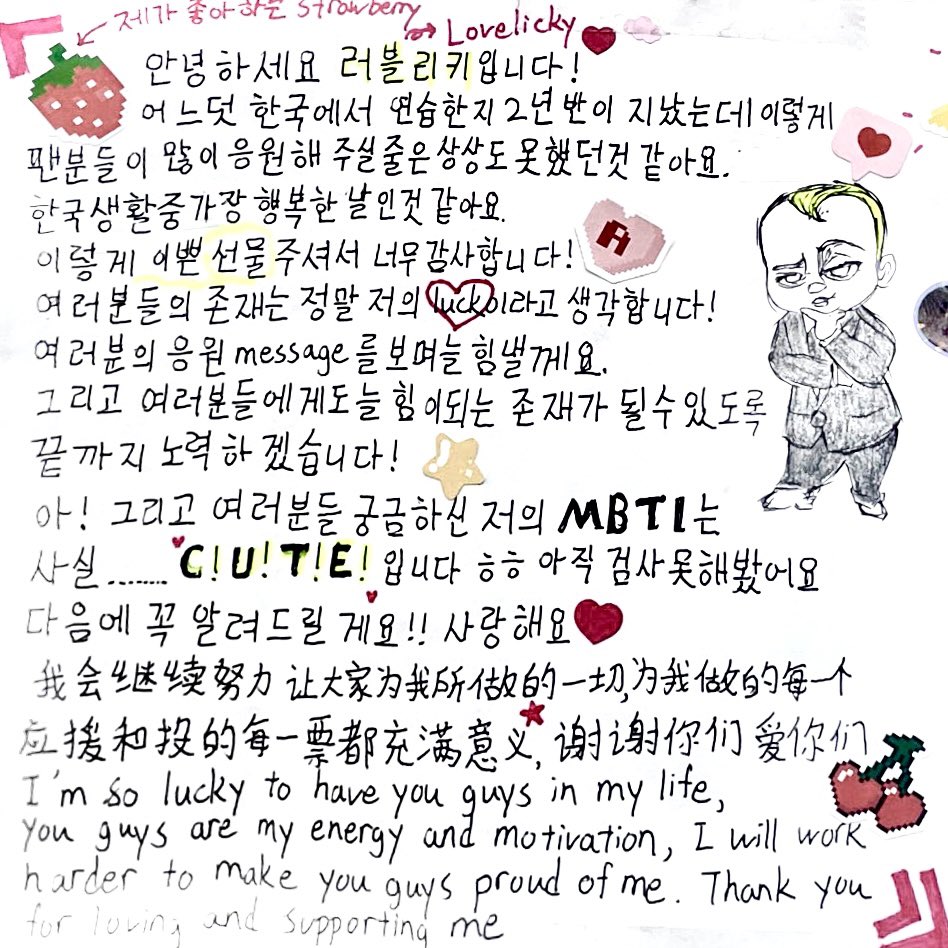 제가 좋아하는 strawberry
Lovelicky
안녕하세요 러블리키입니다!
어느덧 한국에서 연습한지 2년 반이 지났는데 이렇게
팬분들이 많이 응원해 주실줄은 상상도 못했던것 같아요.
한국생활중 가장 행복한 날인것 같아요.
이렇게 이쁜 선물 주셔서 너무 감사합니다!
여러분들의 존재는 정말 저의 luck이라고 생각합니다!
여러분의 응원 message를 보며늘 힘낼게요.
그리고 여러분들에게도늘 힘이되는 존재가 될수있도록
끝까지 노력하겠습니다!
아! 그리고 여러분들 궁금하신 저의 MBTI는
사실 ....... C!U!T!E! 입니다 ㅎㅎ 아직 검사못해봤어요
다음에 꼭 알려드릴게요!! 사랑해요
我会继续努力 让大家为我所做的一切,为我做的每一个
应援和投的每一票都充满意义, 谢谢你们 爱你们
I'm so lucky to have you guys in my life,
you guys are my energy and motivation, I will work
harder to make you guys proud of me. Thank you
for loving and supporting me